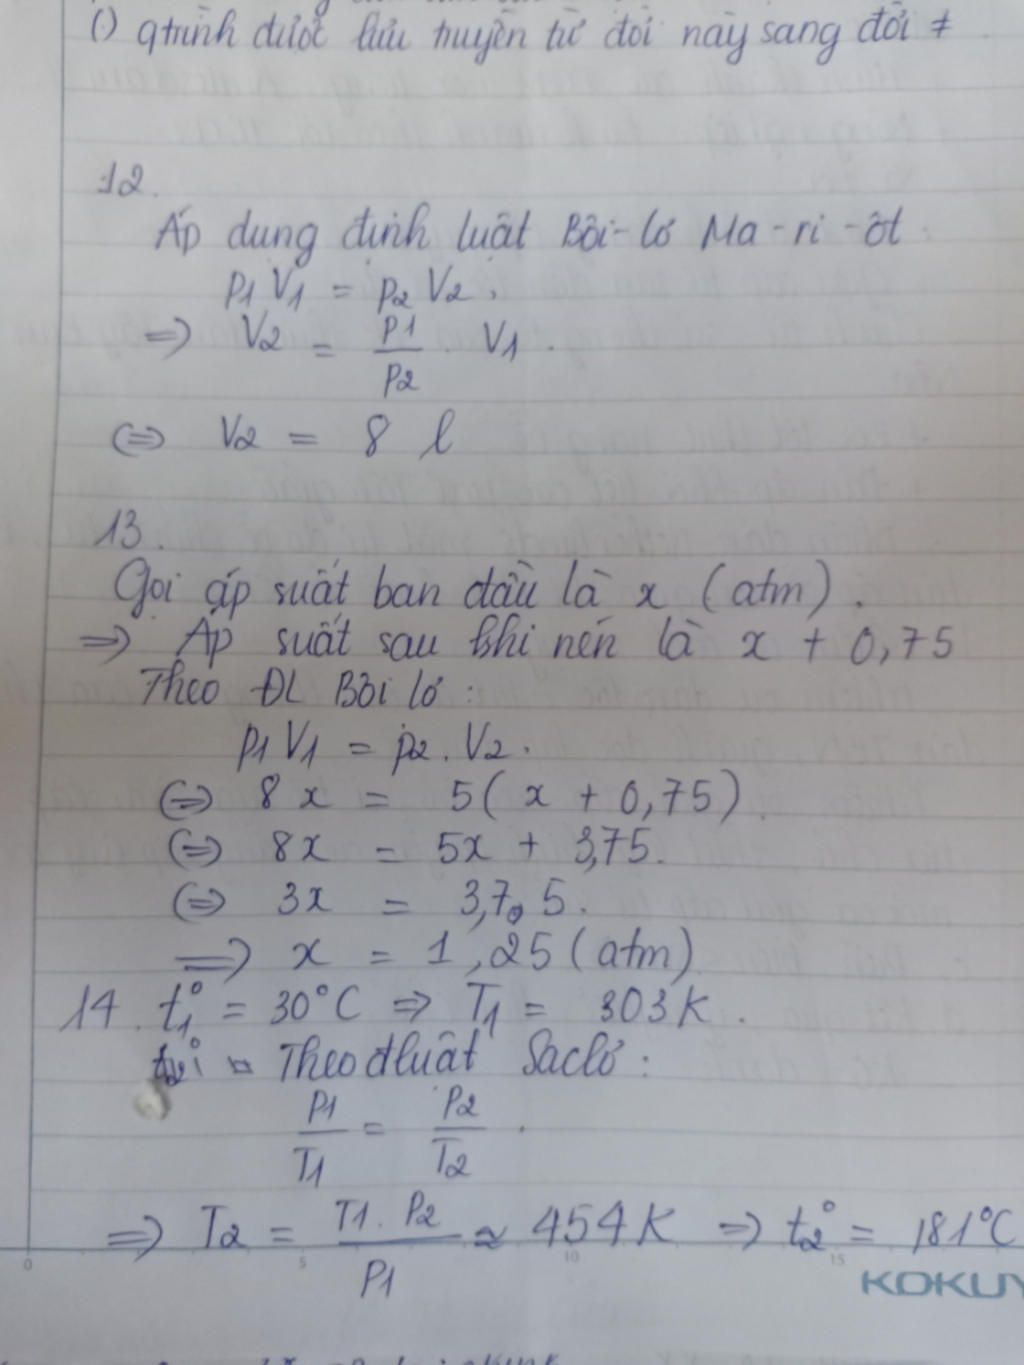 () qtrình được lưu truyền từ đời này sang đời ≠
12.
Áp dụng định luật Bôi-lơ Ma-ri-ôt
P1 V1 = P2 V2.
=> V2 = P1/P2 . V1.
<=> V2 = 8 l
13.
Gọi áp suất ban đầu là x (atm).
=> Áp suất sau khi nén là x + 0,75
Theo ĐL Bôi lơ:
P1 V1 = P2. V2.
<=> 8x = 5(x + 0,75).
<=> 8x = 5x + 3,75.
<=> 3x = 3,75.
=> x = 1,25 (atm)
14. t1° = 30°C => T1 = 303K.
Theo đluật Saclơ:
P1/T1 = P2/T2.
=> T2 = T1. P2/P1 ≈ 454K => t2° = 181°C
0 5 10 15
KOKUY